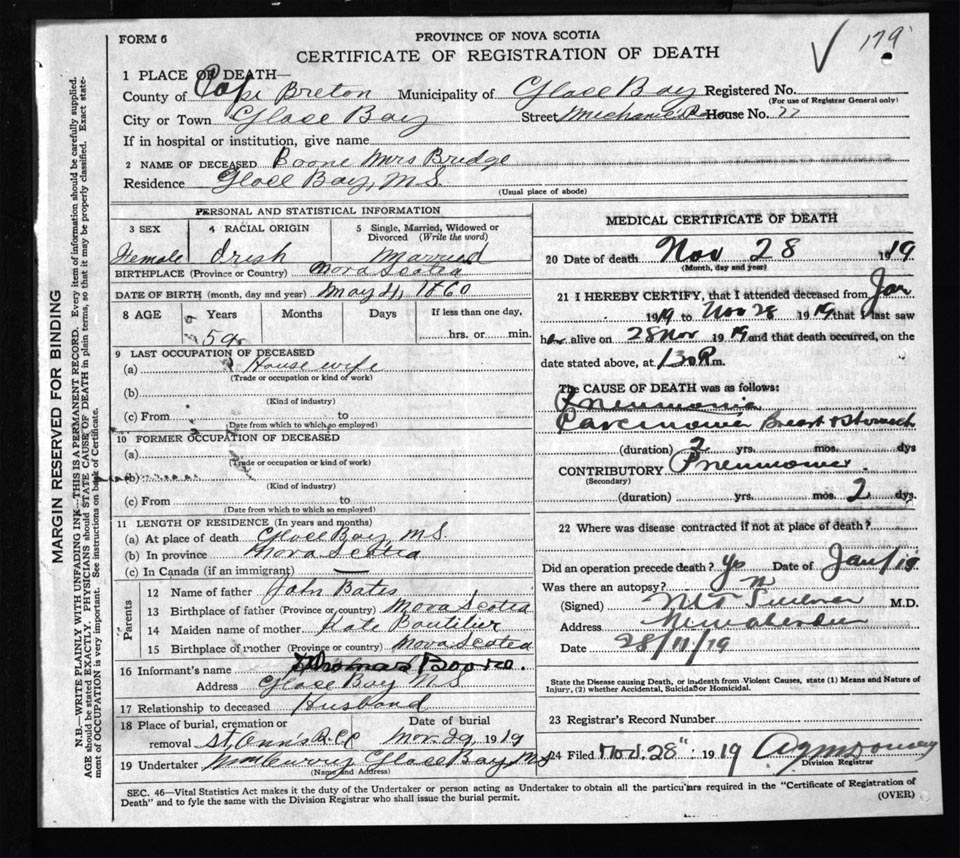 FORM 6
PROVINCE OF NOVA SCOTIA
CERTIFICATE OF REGISTRATION OF DEATH
179
1 PLACE OF DEATH—
County of Cape Breton Municipality of Glace Bay Registered No.
(For use of Registrar General only)
City or Town Glace Bay Street House No. 22
If in hospital or institution, give name
2 NAME OF DECEASED Boone Mrs Bridge
Residence Glace Bay, N.S.
(Usual place of abode)
PERSONAL AND STATISTICAL INFORMATION
3 SEX
4 RACIAL ORIGIN
5 Single, Married, Widowed or
Divorced (Write the word)
Female Irish Married
BIRTHPLACE (Province or Country) Nova Scotia
DATE OF BIRTH (month, day and year) May 4, 1860
8 AGE Years Months Days If less than one day,
59 hrs. or min.
9 LAST OCCUPATION OF DECEASED
(a) House wife
(Trade or occupation or kind of work)
(b)
(Kind of industry)
(c) From to
(Date from which to which so employed)
10 FORMER OCCUPATION OF DECEASED
(a)
(Trade or occupation or kind of work)
(b)
(Kind of industry)
(c) From to
(Date from which to which so employed)
11 LENGTH OF RESIDENCE (In years and months)
(a) At place of death Glace Bay N.S.
(b) In province Nova Scotia
(c) In Canada (if an immigrant)
Parents
12 Name of father John Bates
13 Birthplace of father (Province or country) Nova Scotia
14 Maiden name of mother Kate Boutilier
15 Birthplace of mother (Province or country) Nova Scotia
16 Informant's name Thomas Boone.
Address Glace Bay N.S
17 Relationship to deceased Husband
18 Place of burial, cremation or Date of burial
removal St. Ann's R.C.C Nov 29, 1919
19 Undertaker Wm Curry Glace Bay N.S
(Name and Address)
MEDICAL CERTIFICATE OF DEATH
20 Date of death Nov 28 1919
(Month, day and year)
21 I HEREBY CERTIFY, that I attended deceased from Jan
1919 to Nov 28 1919 that I last saw
her alive on 28 Nov 1919 and that death occurred, on the
date stated above, at 130 P.m.
The CAUSE OF DEATH was as follows:
Pneumonia
Carcinoma Breast & Stomach
(duration) 2 yrs. mos. dys
CONTRIBUTORY Pneumonia
(Secondary)
(duration) yrs. mos. 2 dys.
22 Where was disease contracted if not at place of death?
Did an operation precede death? Yes Date of Jan/19
Was there an autopsy? n
(Signed) M.D.
Address New Aberdeen
Date 28/11/19
State the Disease causing Death, or in death from Violent Causes, state (1) Means and Nature of
Injury, (2) whether Accidental, Suicidal or Homicidal.
23 Registrar's Record Number
24 Filed Nov. 28" 1919
Division Registrar
SEC. 46—Vital Statistics Act makes it the duty of the Undertaker or person acting as Undertaker to obtain all the particulars required in the "Certificate of Registration of
Death" and to fyle the same with the Division Registrar who shall issue the burial permit.
(OVER)
MARGIN RESERVED FOR BINDING
N.B.—WRITE PLAINLY WITH UNFADING INK—THIS IS A PERMANENT RECORD. Every item of information should be carefully supplied.
AGE should be stated EXACTLY. PHYSICIANS should STATE CAUSE OF DEATH in plain terms, so that it may be properly classified. Exact state-
ment of OCCUPATION is very important. See instructions on back of Certificate.